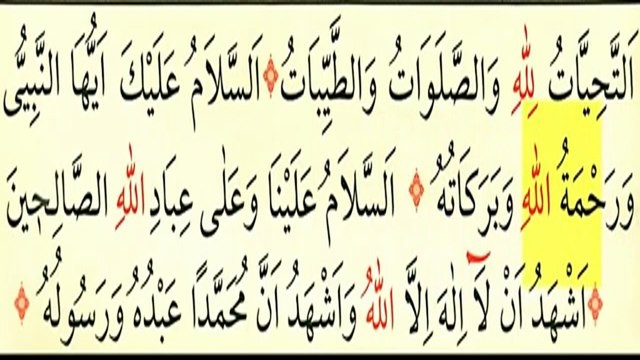 اَلتَّحِيَّاتُ لِلّٰهِ وَالصَّلَوَاتُ وَالطَّيِّبَاتُ ۞ اَلسَّلَامُ عَلَيْكَ اَيُّهَا النَّبِيُّ
وَرَحْمَةُ اللّٰهِ وَبَرَكَاتُهُ ۞ اَلسَّلَامُ عَلَيْنَا وَعَلٰى عِبَادِ اللّٰهِ الصَّالِحِينَ
۞ اَشْهَدُ اَنْ لَٓا اِلٰهَ اِلَّا اللّٰهُ وَاَشْهَدُ اَنَّ مُحَمَّدًا عَبْدُهُ وَرَسُولُهُ ۞